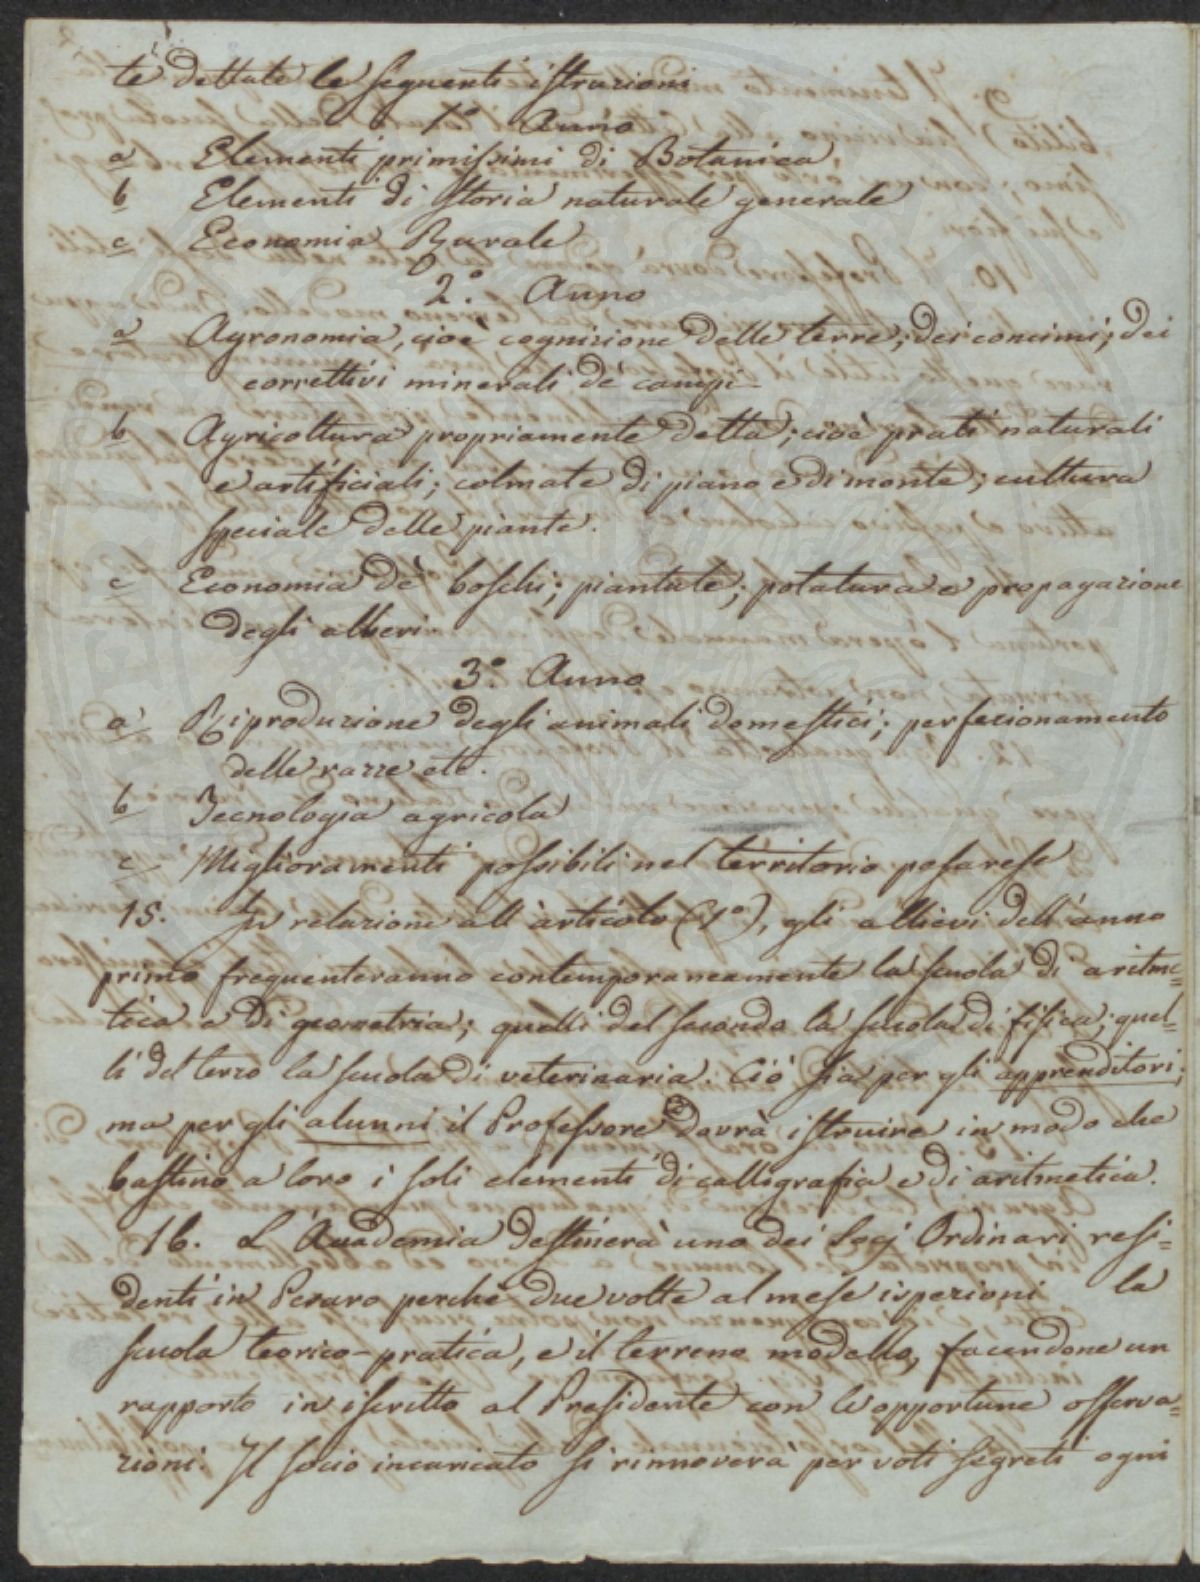 te dettate le seguenti istruzioni
1.° Anno
a Elementi primissimi di Botanica
b Elementi di storia naturale generale
c Economia Rurale
2.° Anno
a Agronomia, cioe cognizione delle terre; dei concimi; dei
correttivi minerali de' campi
b Agricoltura propriamente detta; cioè prati naturali
e artificiali; colmate di piano e di monte; cultura
speciale delle piante.
c Economia de' boschi; piantate; potatura e propagazione
degli alberi
3.° Anno
a Riproduzione degli animali domestici; perfezionamento
delle razze etc.
b Tecnologia agricola
c Miglioramenti possibili nel territorio pesarese
15. In relazione all'articolo (1°), gli allievi dell'anno
primo frequenteranno contemporaneamente la scuola di aritme=
tica e di geometria; quelli del secondo la scuola di fisica; quel=
li del terzo la scuola di veterinaria. Ciò sia per gli apprenditori;
ma per gli alunni il Professore dovrà istruire in modo che
bastino a loro i soli elementi di calligrafia e di aritmetica.
16. L'Accademia destinerà uno dei Socj Ordinari resi=
denti in Pesaro perchè due volte al mese ispezioni la
scuola teorico-pratica, e il terreno modello, facendone un
rapporto in iscritto al Presidente con le opportune osserva=
zioni. Il socio incaricato si rinnoverà per voti segreti ogni